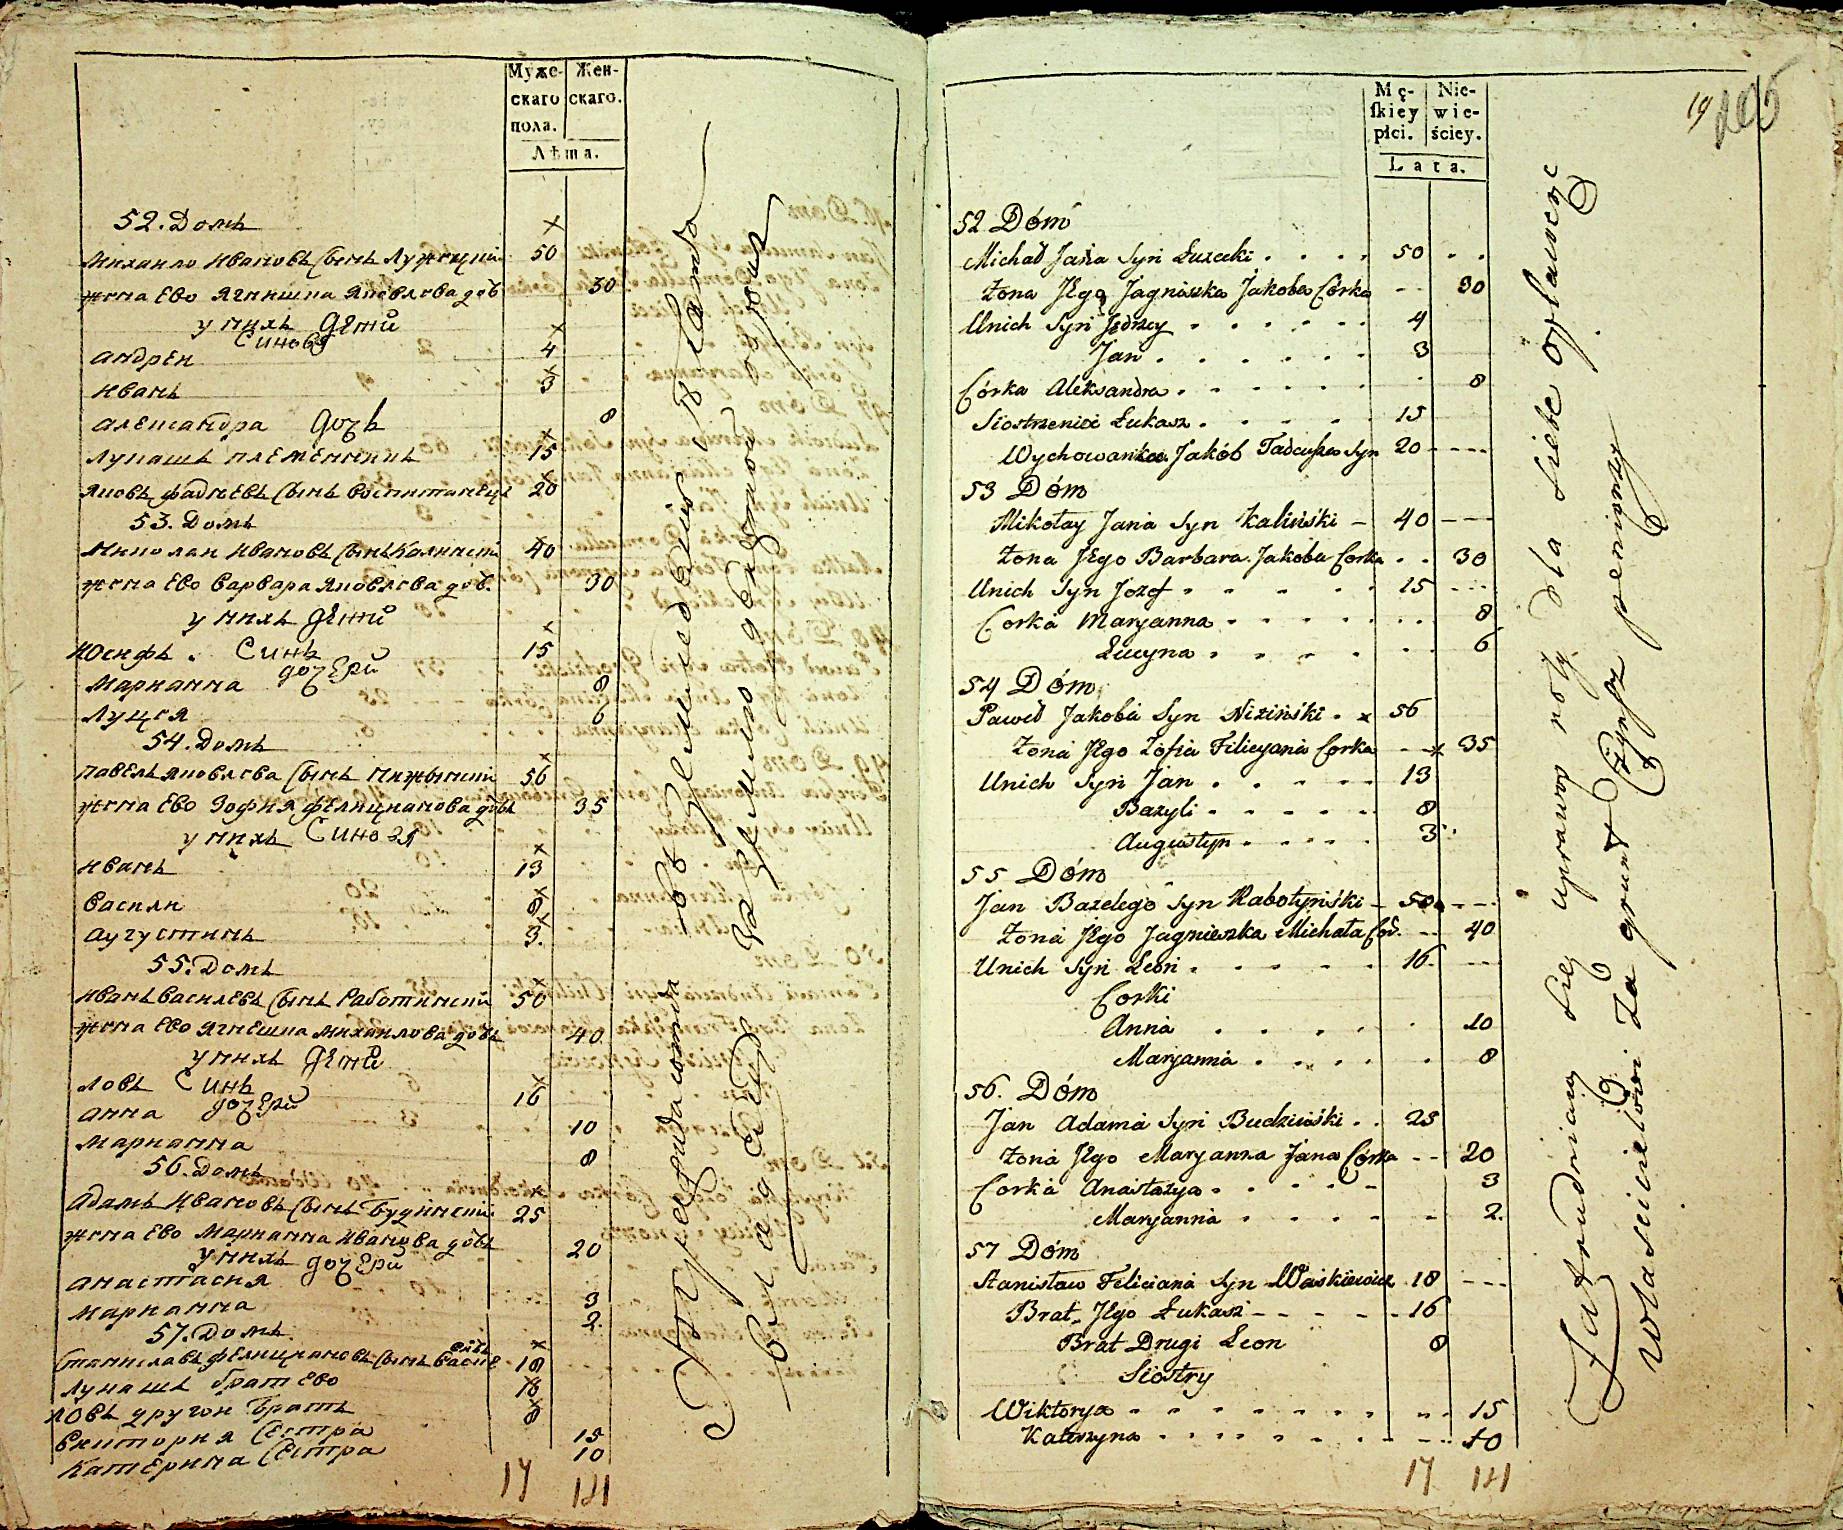 Муже-
скаго
пола.
Жен-
скаго.
Лѣта.
52. Домъ
Михаило Ивановъ Сынъ Лужецкий 50
жена Ево Ягнишка Яковлева доч 30
у нихъ Дети
Синовя
Андрей 4
Иванъ 3
Александра дочъ 8
Лукашъ племенникъ 15
Яковъ Фадѣевъ Сынъ Воспитанецъ 20
53. Домъ
Миколай Ивановъ Сынъ Калинскій 40
жена Ево Варвара Яковлева доч. 30
у нихъ Дети
Юсифъ. Синъ 15
дочери
Марианна 8
Луция 6
54. Домъ
Павелъ Яковлева Сынъ Нижинский 56
жена Ево Зофия Фелицианова дочь 35
у нихъ Синовя
Иванъ 13
Василий 8
Аугустинъ 3.
55. Домъ
Иванъ Василевъ Сынъ Работинский 50
жена Ево Ягнешка Михайлова дочь 40
у нихъ Дети
Ловъ Синъ 16
дочери
Анна 10
Марианна 8
56. Домъ
Адамъ Ивановъ Сынъ Будинский 25
жена Ево Марианна Иванова дочь 20
у нихъ дочери
Анастасия 3
Марианна 2
57. Домъ
Станиславъ Фелициановъ Сынъ 18
Лукашъ братъ Ево 16
Ловъ другой братъ 8
Виктория Сестра 15
Катерина Сестра 10
17 14
Mę-
ſkiey
płci.
Nie-
wie-
ściey.
Lata.
19
52 Dóm
Michał Jana Syn Łuzecki 50
Zona Jego Jagniszka Jakoba Córka 30
Unich Syn Jędrzey 4
Jan 3
Córka Aleksandra 8
Siostrzeniec Łukasz 15
Wychowaniec Jakób Tadeusza Syn 20
53 Dóm
Mikołay Jana Syn Kaliński 40
Zona Jego Barbara Jakoba Corka 30
Unich Syn Jozef 15
Corka Maryanna 8
Łucyna 6
54 Dóm
Paweł Jakoba Syn Niziński 56
Zona Jego Zofia Filicyana Corka 35
Unich Syn Jan 13
Bazyli 8
Augustyn 3
55 Dóm
Jan Bazelego Syn Rabotyński 50
Zona Jego Jagnieszka Michała Cor. 40
Unich Syn Leon 16
Corki
Anna 10
Maryanna 8
56. Dóm
Jan Adama Syn Budziński 25
Zona Jego Maryanna Jana Córka 20
Corka Anastazya 3
Maryanna 2
57 Dóm
Stanisław Feliciana Syn Waśkiewicz 18
Brat Jego Łukasz 16
Brat Drugi Leon 8
Siostry
Wiktorya 15
Katerzyna 10
17 14
Zatrudniaią się uprawą roly dla siebie opłaucąc
Własicielowi Za grunt Czynsz pieniężny